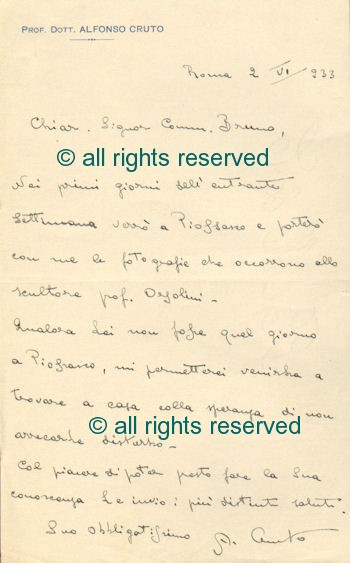 PROF. DOTT. ALFONSO CRUTO
Roma 2 VI 933
Chiar. Signor Comm. Bruno,
© all rights reserved
Nei primi giorni dell'entrante
settimana verrò a Piossasco e porterò
con me le fotografie che occorrono allo
scultore prof. Orsolini -
Qualora Lei non fosse quel giorno
a Piossasco, mi permetterei venirla a
trovare a casa colla speranza di non
© all rights reserved
arrecarle disturbo -
Col piacere di poter presto fare la Sua
conoscenza Le invio i più distinti saluti.
Suo obbligatissimo A. Cruto